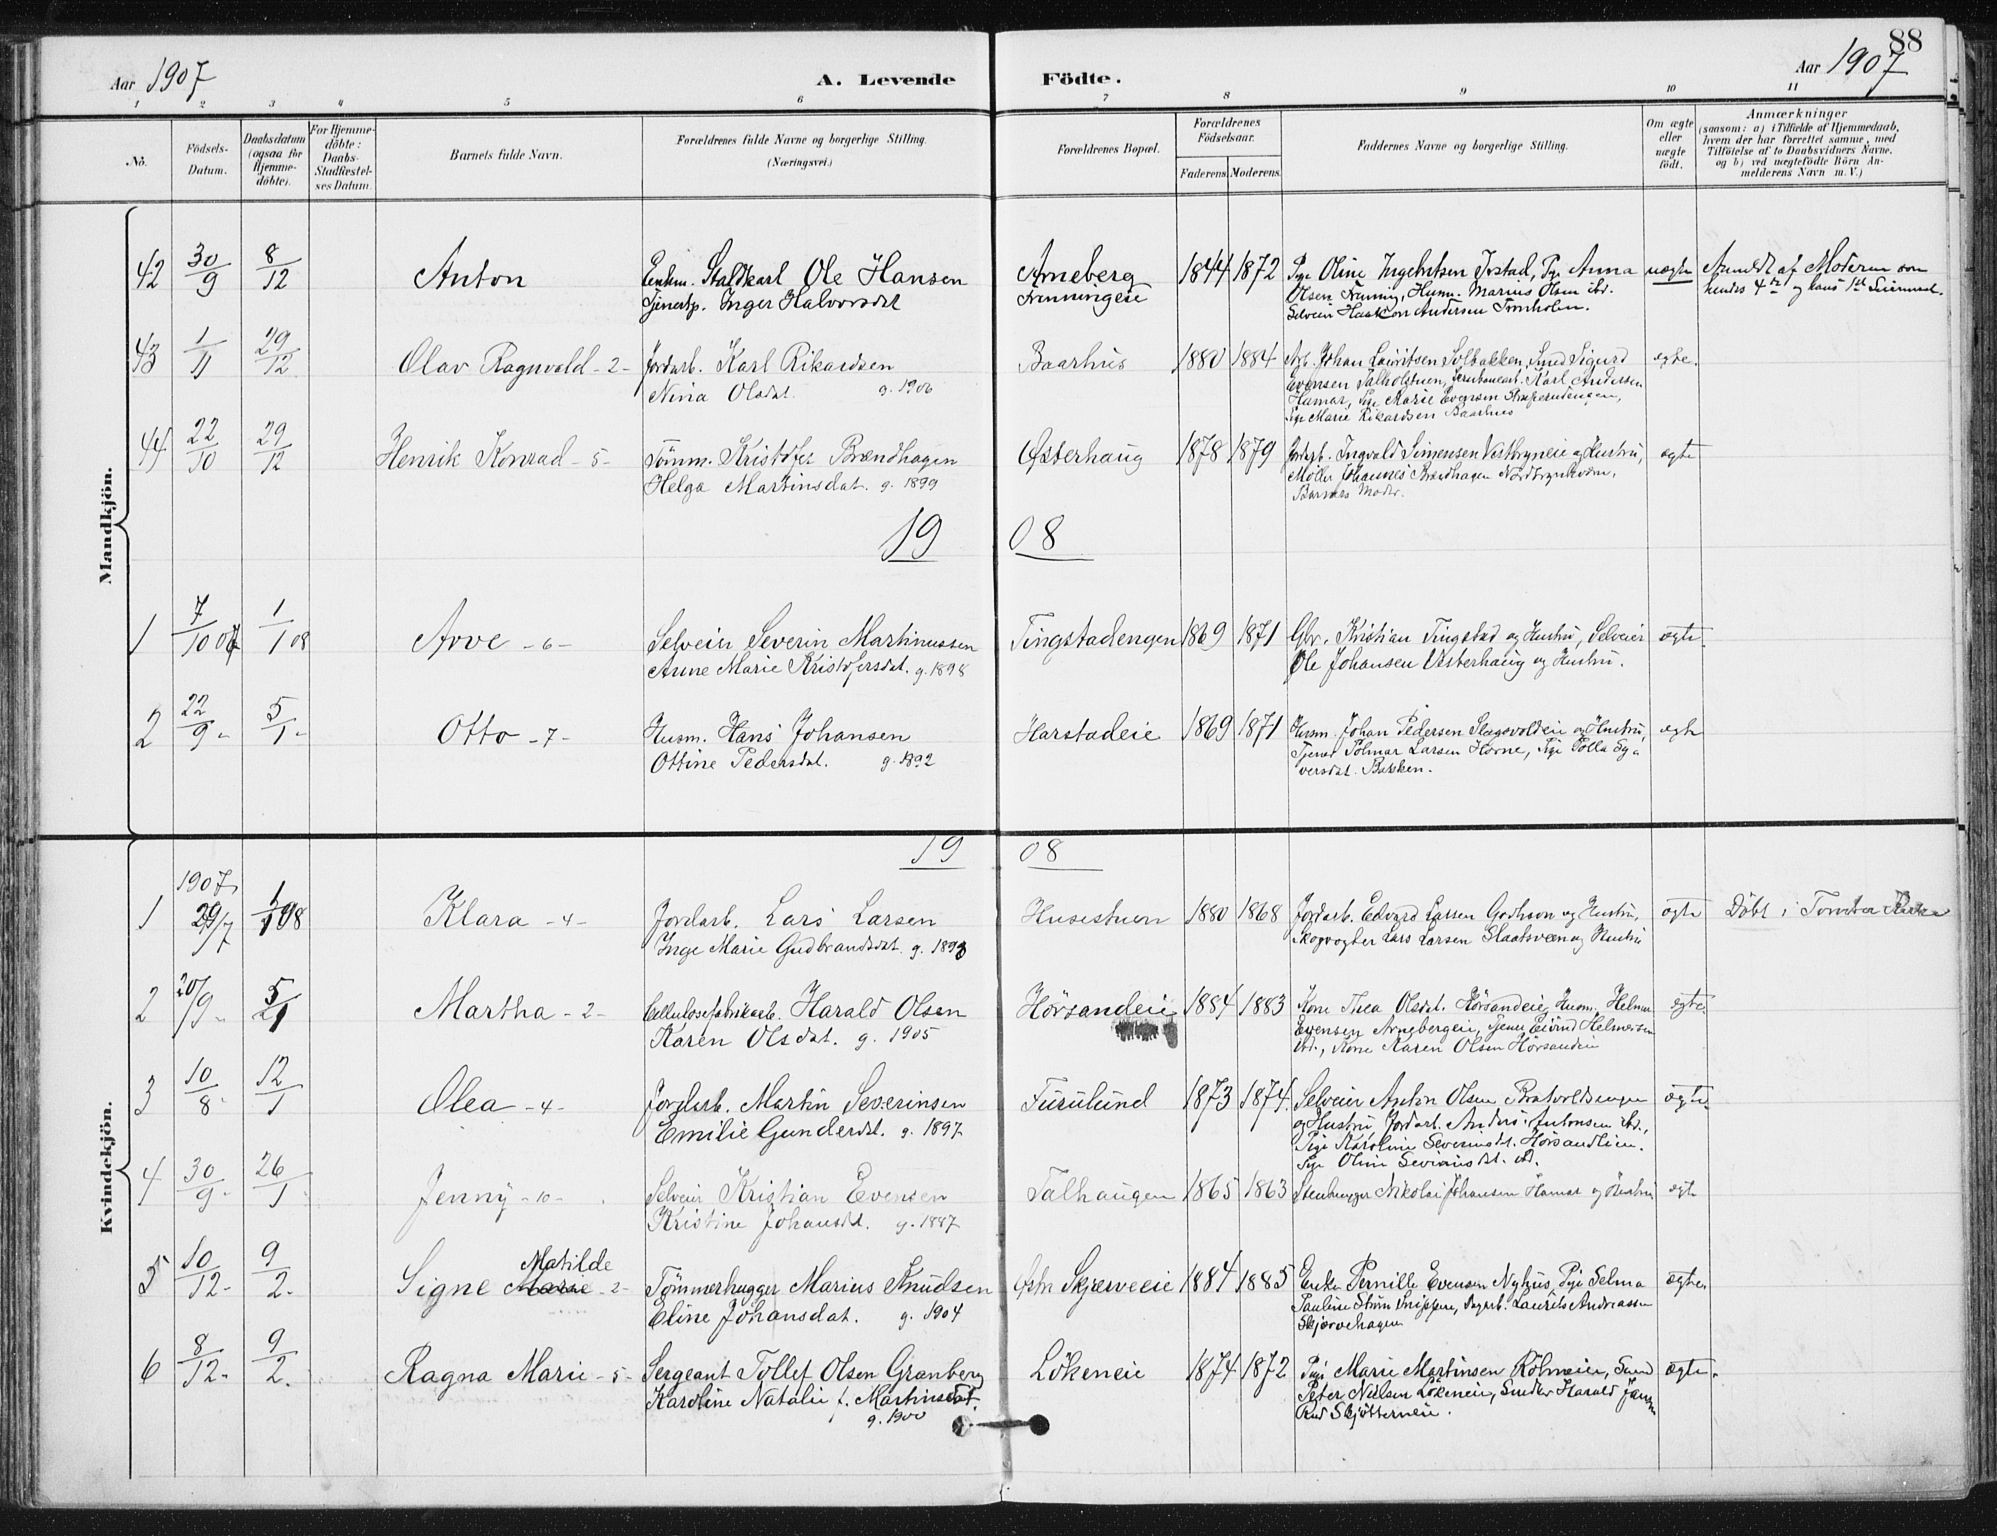 88
Aar 1907 A. Levende Födte. Aar 1907
1 2 3 4 5 6 7 8 9 10 11
No. Födsels-Datum. Daabsdatum (ogsaa for Hjemme-döbte). For Hjemme-döbte: Daabs-Stadfæstel-ses Datum. Barnets fulde Navn. Forældrenes fulde Navne og borgerlige Stilling. (Næringsvei.) Forældrenes Bopæl. Forældrenes Födselsaar. Faderens. Moderens. Faddernes Navne og borgerlige Stilling. Om ægte eller uægte födt. Anmærkninger (saasom: a) i Tilfælde af Hjemmedaab, hvem der har forrettet samme, med Tilföielse af to Daabsvidners Navne, og b) ved uægtefödte Börn An-melderens Navn m. V.)
Mandkjön.
42 30/9 8/12 Anton Enkm. Staldkarl Ole Hansen Arneberg 1844 1872 Pige Oline Ingebretsen Jostad, Pige Anna uægte Anmeldt af Moderen som
Tjenestp. Inger Halvorsdat Frenningeie Olsen Frenning, Husm. Marius Olsen ibd. hendes 4de og hans 1ste
Selveier Haakon Andersen
43 1/11 29/12 Olav Ragnvald - 2 - Jordarb. Karl Rikardsen Baarhus 1880 1884 Arb. Johan Lauritsen Solbakken, Smed Sigurd ægte.
Nina Olsdat. g. 1906 Evensen Karl Andersen
Hamar, Pige Marie Evensen
Pige Marie Rikardsen Baarhus
44 22/10 29/12 Henrik Konrad - 5 - Tömm. Kristofer Brændhagen Østerhaug 1878 1879 Jordarb. Ingvald Simensen Vestbryneie og Hustru, ægte
Helga Martinsdat. g. 1899 Möller Johannes Brændhagen
Barnets Moder.
19 08
1 7/10 07 1/1 08 Arve - 6 - Selveier Severin Martinussen Tingstadengen 1869 1871 Gbr. Kristian Tingstad og Hustru, Selveier ægte.
Anne Marie Kristofersdat. g. 1898 Ole Johansen Vesterhaug og Hustru.
2 22/9 - 5/1 - Otto - 7 - Husm. Hans Johansen Harstadeie 1869 1871 Husm. Johan Pedersen Slagsvoldeie og Hustru, ægte
Ottine Pedersdat. g. 1892 Tjener Polmar Larsen Horne, Pige
versdat. Bakken.
19 08
Kvindekjön.
1907
1 29/7 1/1 08 Klara - 4 - Jordarb. Lars Larsen Husestuen 1880 1868 Jordarb. Edvard Larsen og Hustru, ægte Döbt i Kirke
Inge Marie Gudbrandsdat. g. 1898 Skogvogter Lars Larsen og Hustru
2 20/9 - 5/1 Martha - 2 - Cellulosefabrikarb. Harald Olsen Hörsandeie 1884 1883 Kone Thea Olsdat. Hörsandeie, Husm. Helmer ægte.
Karen Olsdat. g. 1905 Evensen Arnebergeie, Tjener Eivind Helmersen
ibd., Kone Karen Olsen Hörsandeie
3 10/8 - 12/1 Olea - 4 - Jordarb. Martin Severinsen Furulund 1873 1874. Selveier Anton Olsen Bratvoldsengen ægte.
Emilie Gundersdt. g. 1897 og Hustru, Jordarb. Anders Antonsen ibd.,
Pige Karoline Severinsdt. Hörsandlien.
Pige Oline Severinsdt. ibd.
4 30/9 - 26/1 Jenny - 10 - Selveier Kristian Evensen Talhaugen 1865 1863 Stenhugger Nikolai Johansen Hamar og Hustru ægte
Kristine Johansdt. g. 1887
Matilde
5 10/12 - 9/2. Signe Marie - 2 - Tömmerhugger Marius Knudsen Östr. Skjærveeie 1884 1885 Enke Pernille Evensen Nyhus, Pige Selma ægte.
Eline Johansdat. g. 1904 Pauline Snippen, Dagarb. Laurits Andreassen
Skjærvehagen
6 8/12 - 9/2. Ragna Marie - 5 - Sergeant Tollef Olsen Granberg Lökeneie 1874 1872 Pige Marie Martinsen ægte.
Karoline Natalie f. Martinsdat. Peter Nielsen Lökeneie, Snedker Harald
g. 1900 Rud Skjötterneie.